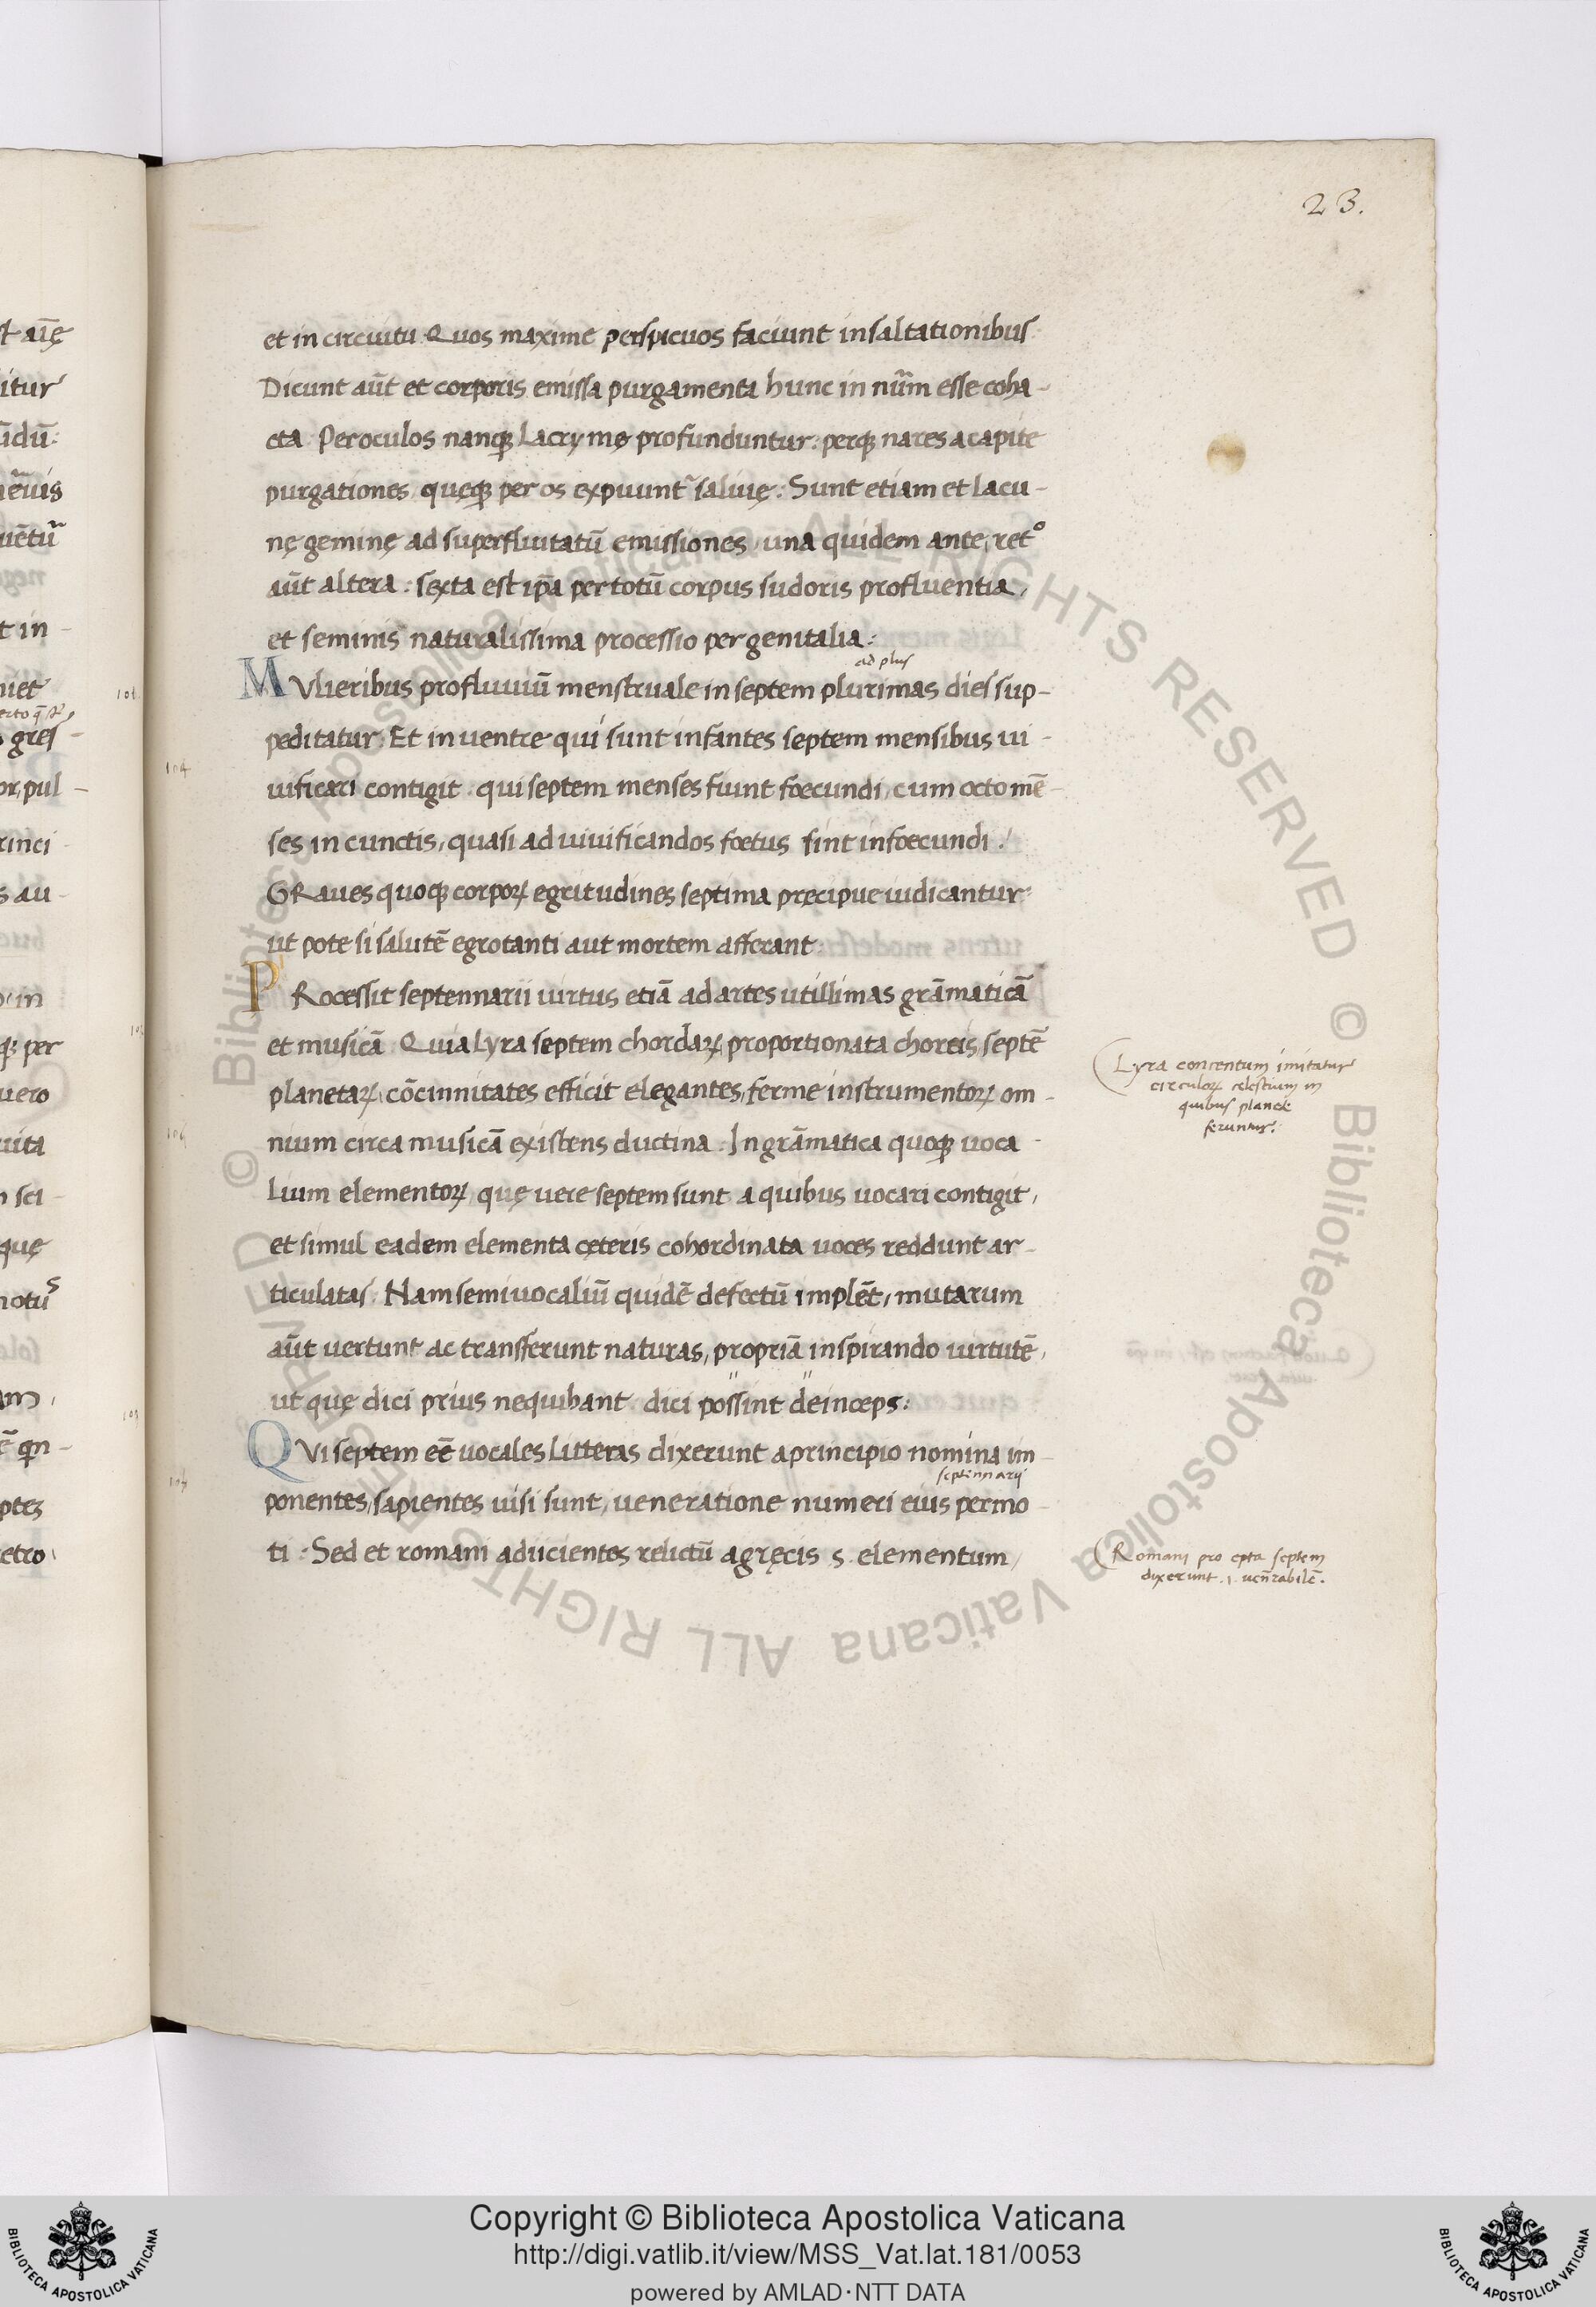 23.
et in circuitu Quos maxime perspicuos faciunt in saltationibus
Dicunt aūt et corporis emissa purgamenta hunc in nūm esse coha-
cta. Per oculos nanqꝫ Lacrymę profunduntur: perqꝫ nares a capite
purgationes queqꝫ per os expuunt~ saliuę: Sunt etiam et lacu-
nę geminę ad superfluitatū emissiones, una quidem ante, ret°
aūt altera: sexta est ip̄a per totū corpus sudoris profluentia,
et seminis naturalissima processio per genitalia:
ad plus
MVlieribus profluuiū menstruale in septem plurimas dies sup-
peditatur. Et in uentre qui sunt infantes septem mensibus ui-
uificari contigit. qui septem menses fiunt foecundi, cum octo mē-
ses in cunctis, quasi ad uiuificandos foetus sint infoecundi.
GRaues quoqꝫ corpoꝝ egritudines septima pręcipue iudicantur:
ut pote si salutē egrotanti aut mortem afferant:
PRocessit septennarii uirtus etiā ad artes utillimas grāmaticā
et musicā. Quia Lyra septem chordaꝝ, proportionata choreis septē
planetaꝝ, cōcinnitates efficit elegantes, ferme instrumentoꝝ om-
nium circa musicā existens ductina. In grāmatica quoqꝫ uoca-
Lium elementoꝝ, quę uere septem sunt a quibus uocari contigit,
et simul eadem elementa cęteris cohordinata uoces reddunt ar-
ticulatas. Nam semiuocaliū quidē defectū implēt, mutarum
aūt uertunt ac transferunt naturas, propriā inspirando uirtutē,
ut quę dici prius nequibant. dici possint deinceps:
QVi septem eē uocales Litteras dixerunt a principio nomina im-
septennarij
ponentes, sapientes uisi sunt, ueneratione numeri eius permo-
ti: Sed et romani adiicientes relictū a gręcis s. elementum,
Lyra concentum imitatur
circuloꝝ celestium in
quibus planetę
feruntur:
Romani pro epta septem
dixerunt .i. uen̄rabilē.
104
Copyright © Biblioteca Apostolica Vaticana
http://digi.vatlib.it/view/MSS_Vat.lat.181/0053
powered by AMLAD·NTT DATA